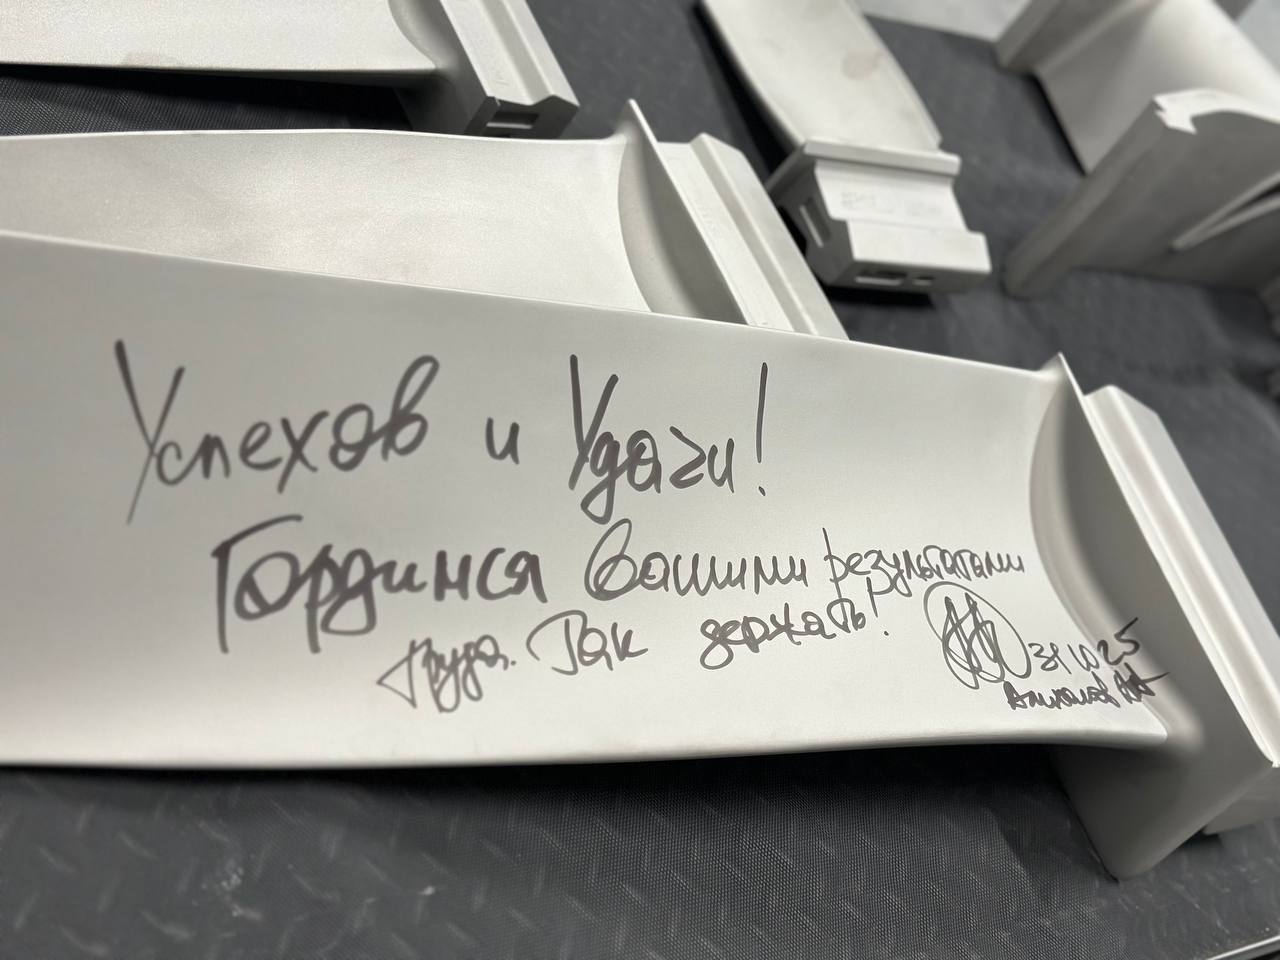 Успехов и Удачи!
Гордимся Вашими результатами
труда. Так держать!
31 10 25